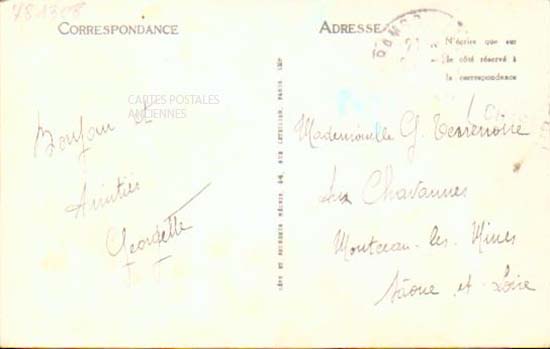 781308
CORRESPONDANCE
ADRESSE
N'écrire que sur
le côté réservé à
la correspondance
CARTES POSTALES
ANCIENNES
Bonjour et
Amitiés
Georgette
Mademoiselle G. Terrenoire
Les Chavannes
Montceau-les-Mines
Saône-et-Loire